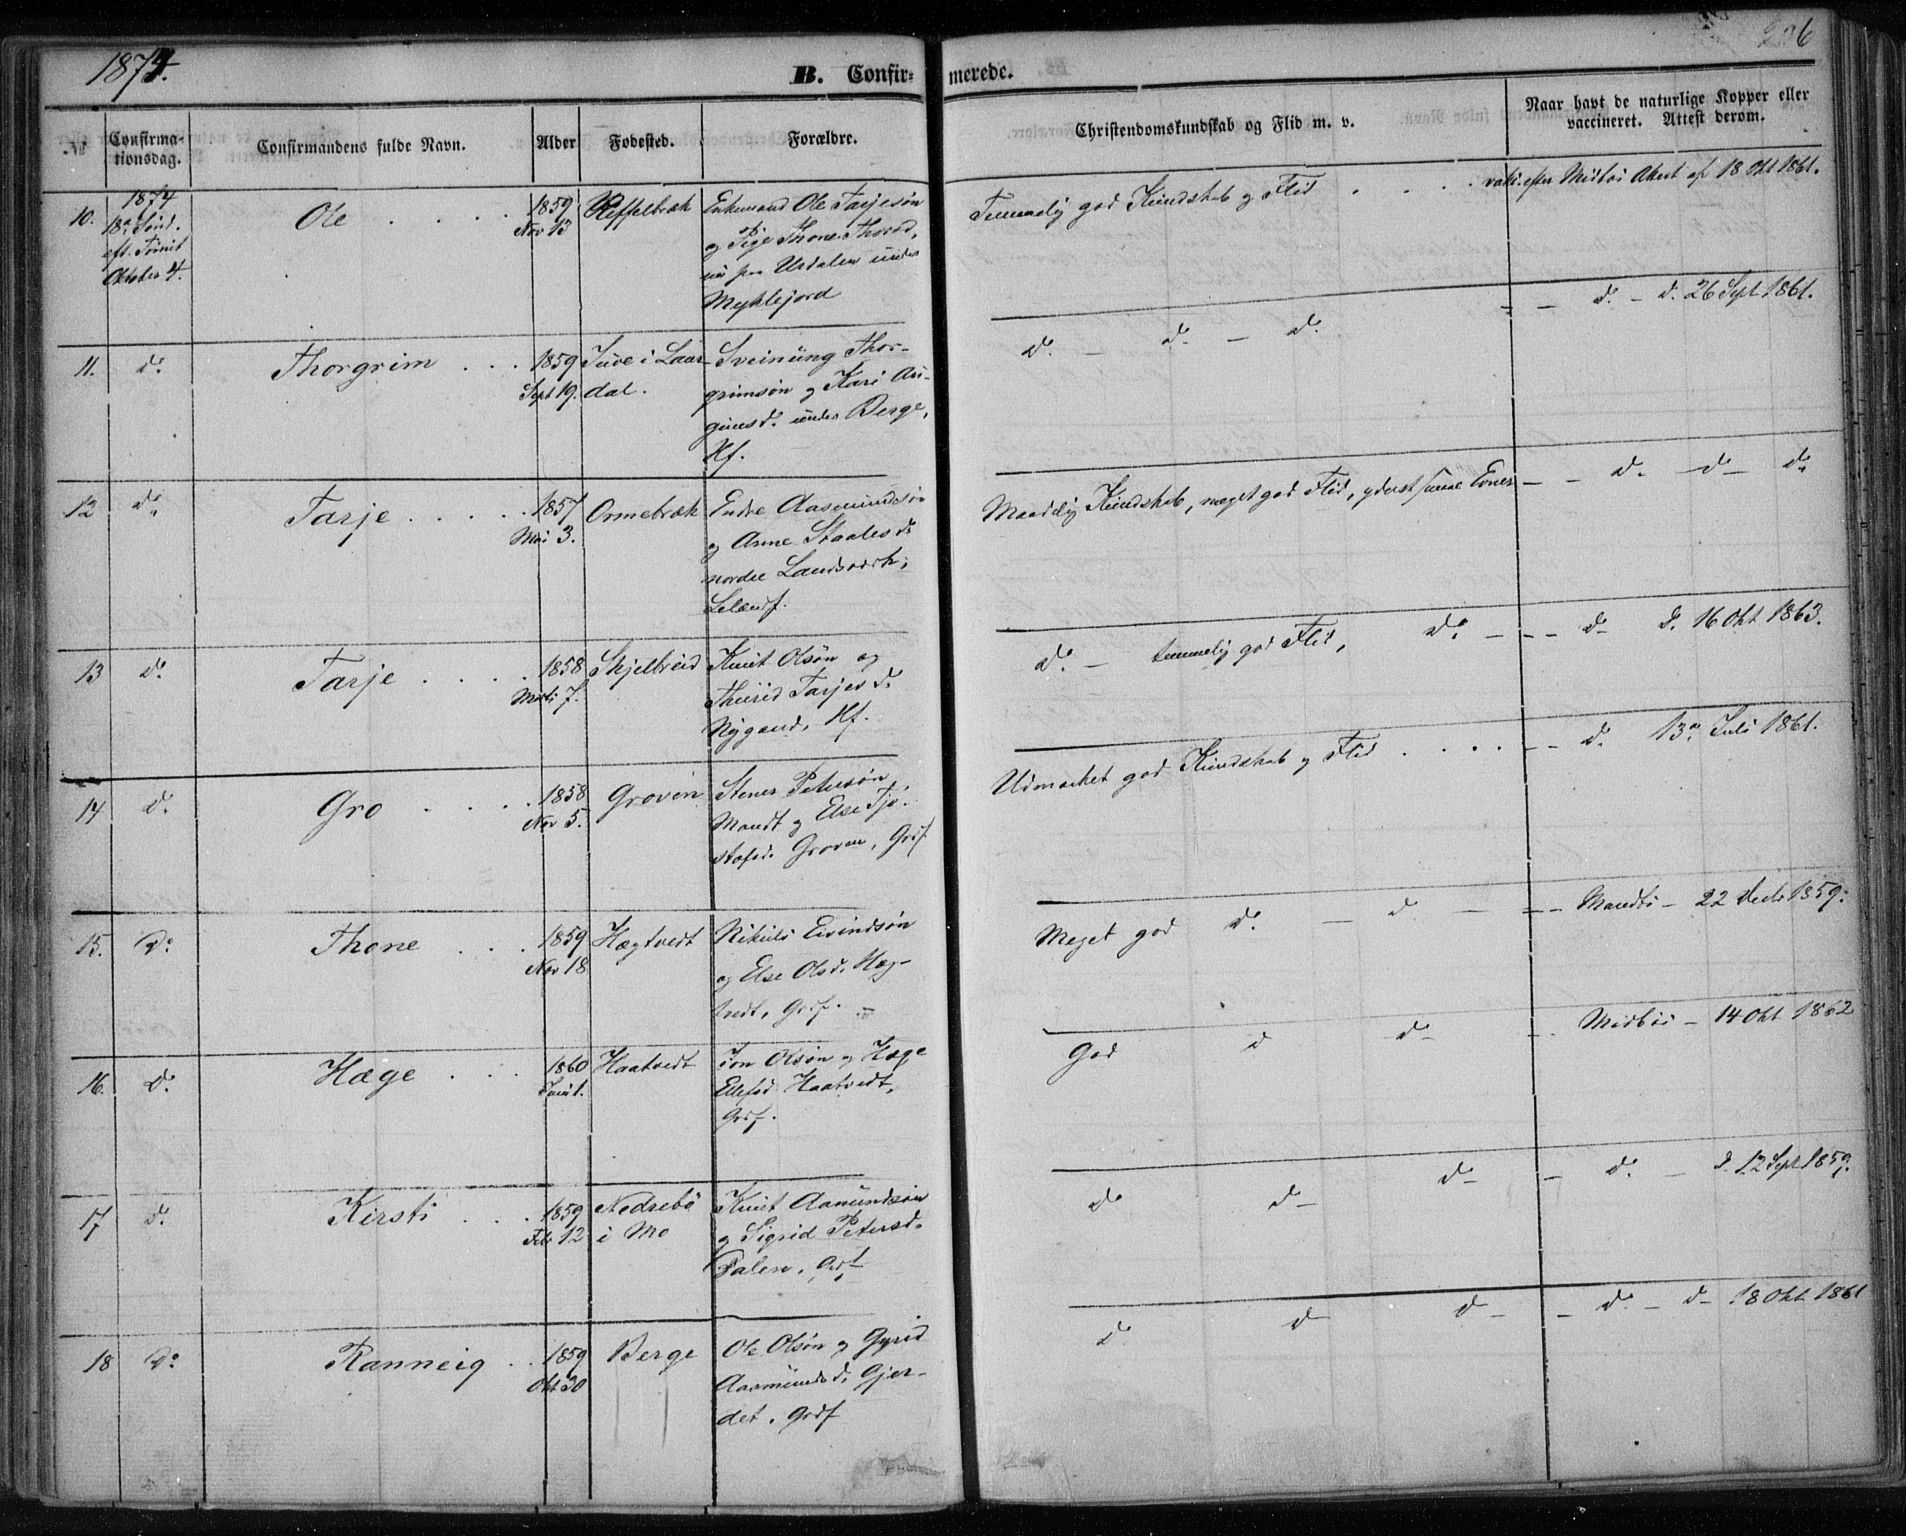 1874.
B. Confir= merede.
206
№ Confirma-tionsdag. Confirmandens fulde Navn. Alder Fødested. Forældre. Christendomskundskab og Flid m. v. Naar havt de naturlige Kopper eller vaccineret. Attest derom.
10. 1874
18de Sønd.
eft. Trinit
Oktober 4.
Ole . . . .
1859
Nov 13
Enkemand Ole Tarjesøn
og Pige Thone
Urdalen under
Myklejord
Temmelig god Kundskab og Flid . . . .
vaki. efter Midbøs Attest af 18 Okt 1861.
11. do Thorgrim . . .
1859
Sept 19.
Juve i Laar-
dal.
Sveinung Thor-
grimsøn og Kari Au-
gunsd. under Berge,
Hf.
do. — do. — do.
— — do. — d. 26 Sept 1861.
12 do Tarje . . . . .
1857
Mai 3.
Ormebræk
Endre Aasmundsø
og Anne Staalesd.
nordre Landsværk,
Leilændf.
Maadelig Kundskab, meget god Flid, yderst smaa Evner
— — do — do — do
13 do Tarje . . . .
1858
Marti 7.
Skjelbreid
Knut Olsøn og
Thurid Tarjesd.
Nygaard, Hf.
do. — temmelig god Flid, do. — — — do — d. 16 Okt 1863.
14 do. Gro . . . .
1858
Nov 5.
Groven
Stener Petersøn
Mandt og Else Tjo-
stofsd. Groven, Grdf.
Udmærket god Kundskab og Flid . . . . — — do. 13de Juli 1861.
15. do Thone . . .
1859
Nov 18
Hægtvedt
Nikuls Eivindsøn
og Else Olsd. Hæg-
tvedt, Grdf. —
Meget god do. — do — — — Mandts — 22 1859.
16. do. Hæge . . .
1860
Juni 1.
Haatvedt
Jon Olsøn og Hæge
Ellefsd. Haatvedt,
Grdf.
God do do — — Midbøs — 14 Okt 1862
17 do. Kirsti . . .
1859
Feb 12
Nedrebø
i Mo
Knut Aamundsøn
og Sigrid Petersd.
Dalen, Grdf
do do — do — — do. — d. 12 Sept 1859.
18 do Ranneig . .
1859
Okt 30
Berge
Ole Olsøn og Gyrid
Aasmundsd. Gjer-
det. Grdf
do do — do — — do — do — 18 Okt 1861